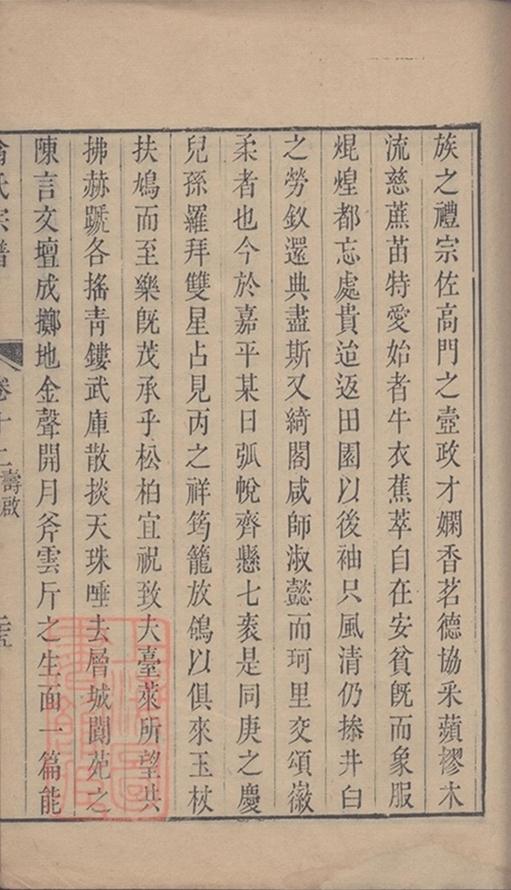 族之禮宗佐高門之壼政才嫻香茗德協釆蘋樛木
流慈蔗苗特愛始者牛衣蕉萃自在安貧旣而象服
焜煌都忘處貴迨返田園以後袖只風清仍操井臼
之勞釵還典盡斯又綺閣咸師淑懿而珂里交頌徽
柔者也今於嘉平某日弧帨齊懸七袠是同庚之慶
兒孫羅拜雙星占見丙之祥筠籠放鴿以俱來玉杖
扶鳩而至樂旣茂承乎松柏宜祝致夫臺萊所望共
拂赫蹏各搖靑鏤武庫散掞天珠唾去層城閬苑之
陳言文壇成擲地金聲開月斧雲斤之生面一篇能
氏宗譜 卷十二 壽啟